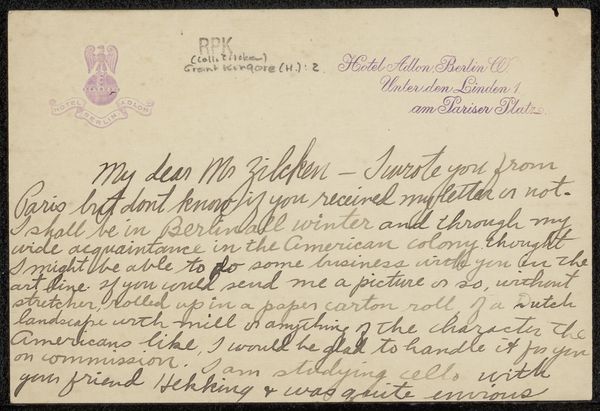 RPK
(Coll. Zilcken)
Grant Kingore (H.): 2
HOTEL ADLON
BERLIN
Hotel Adlon, Berlin W.
Unter den Linden 1
am Pariser Platz
My dear Mr Zilcken – I wrote you from
Paris but dont know if you received my letter or not.
I shall be in Berlin all winter and through my
wide acquaintance in the American colony thought
I might be able to do some business with you in the
art line if you would send me a picture or so, without
stretcher, rolled up in a paper carton roll of a Dutch
landscape with mill or anything of the character the
Americans like, I would be glad to handle it for you
on commission. I am studying cello with
your friend Hekking & was quite envious